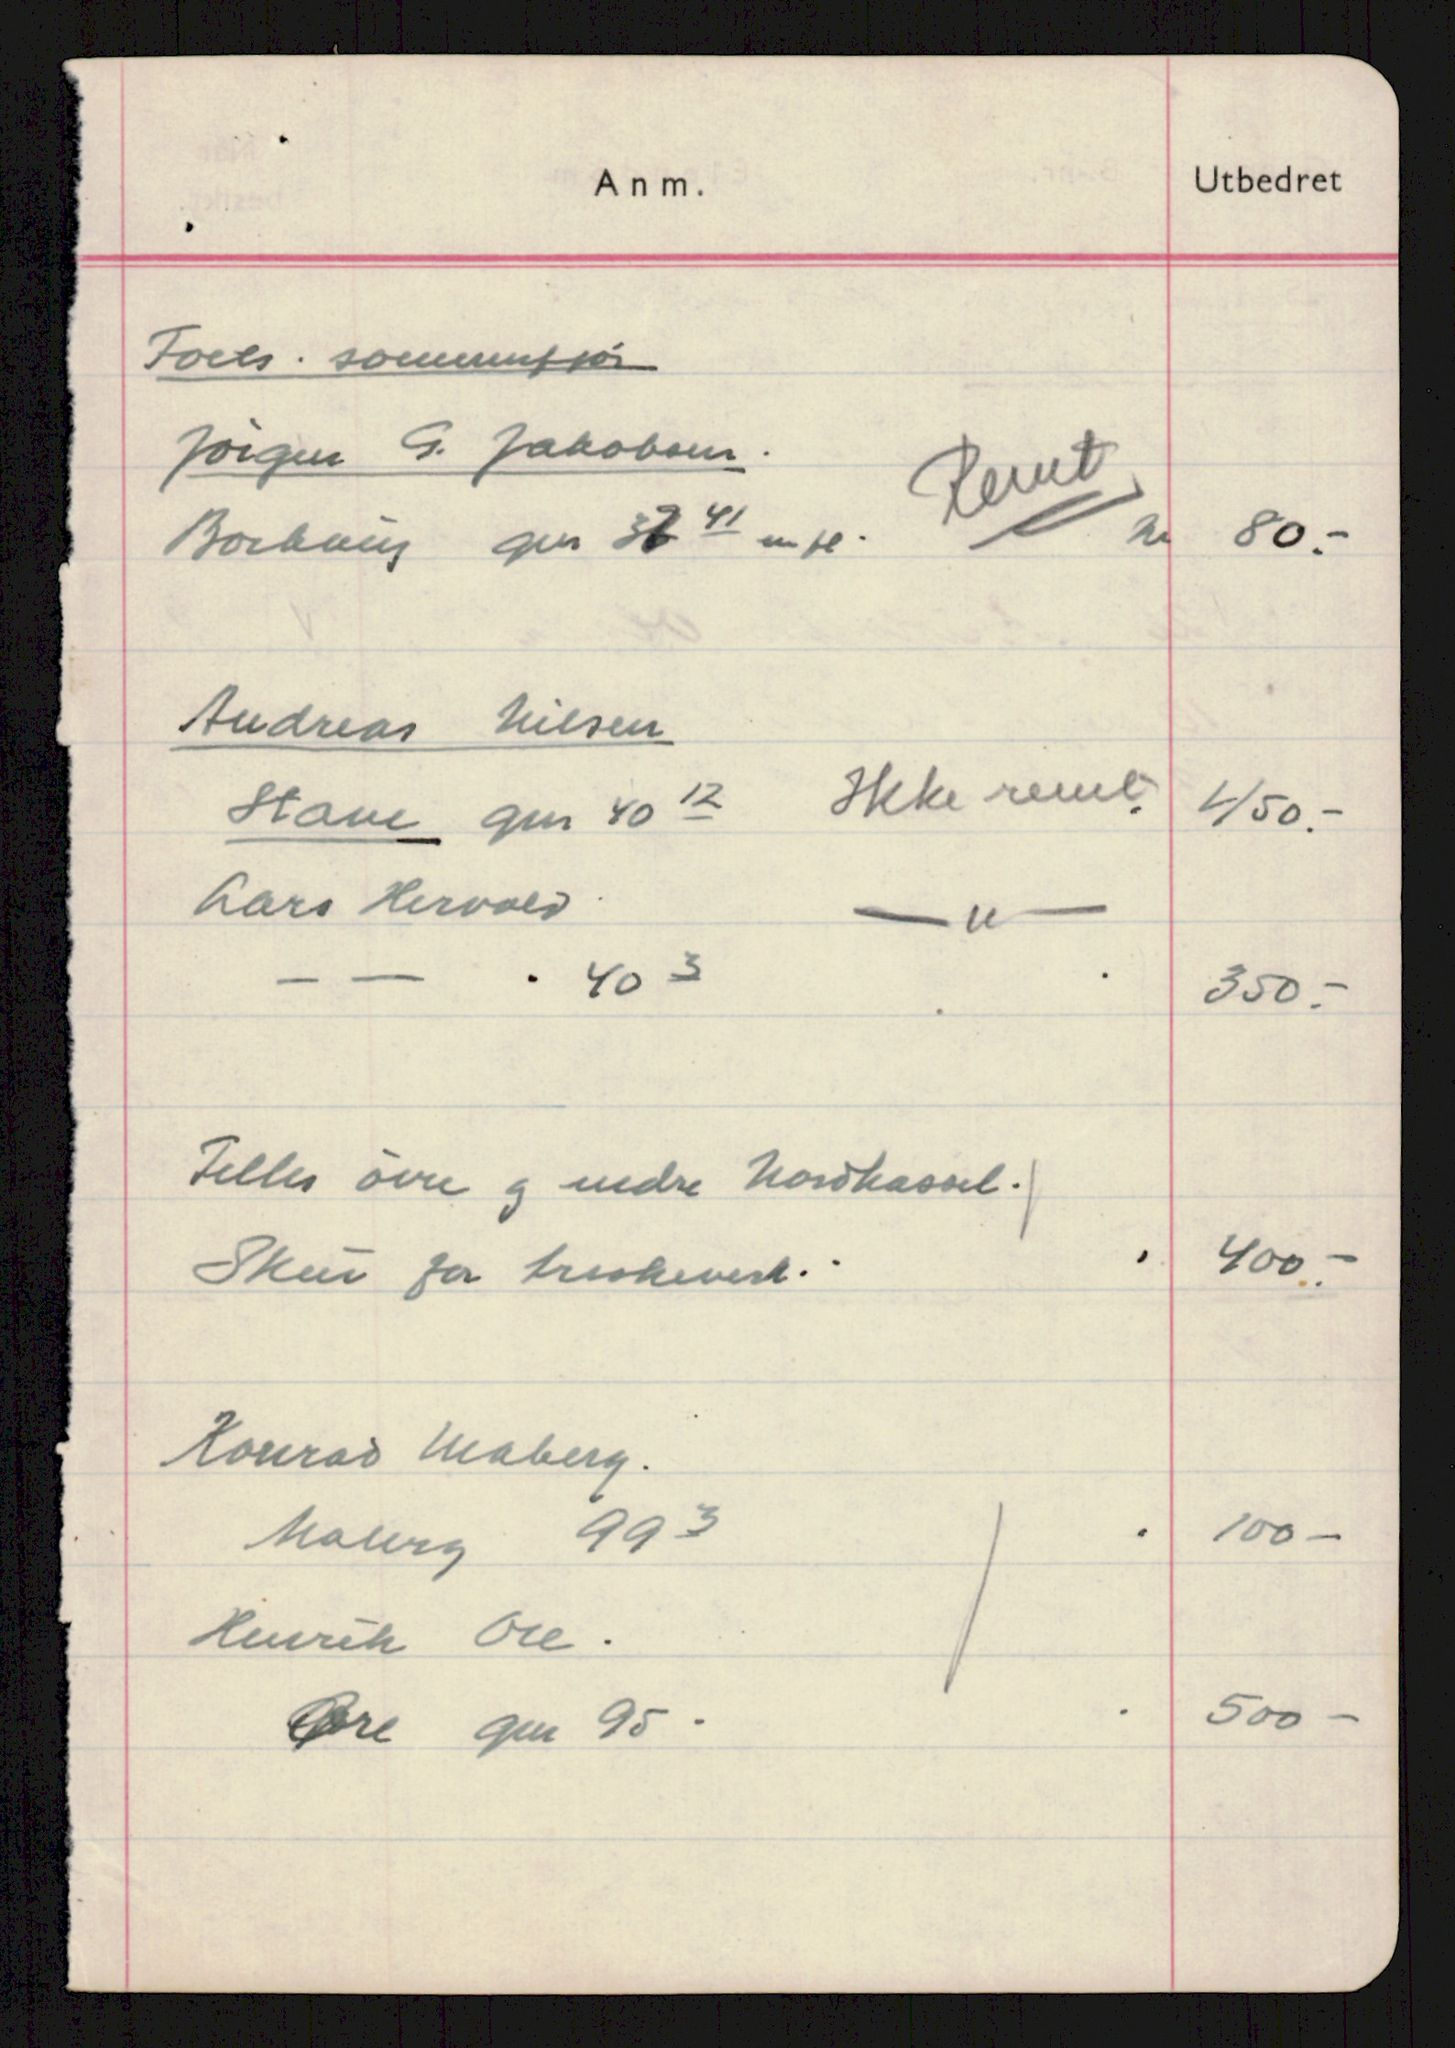 Anm. Utbedret
Jörgen G. Jakobsen.
gnr 41 m fl. Remt kr 80.-
Andreas Nilsen
Stave gnr 40 12 Ikke remt. 450.-
Lars Hervold — " —
— — . 40 3 . 350.-
Felles övre g nedre Nordhassel.
Skur for treskeverk. . 400.-
Konrad Maberg.
Maberg 99 3 . 100-
Henrik Ore.
Ore gnr 95. . 500-